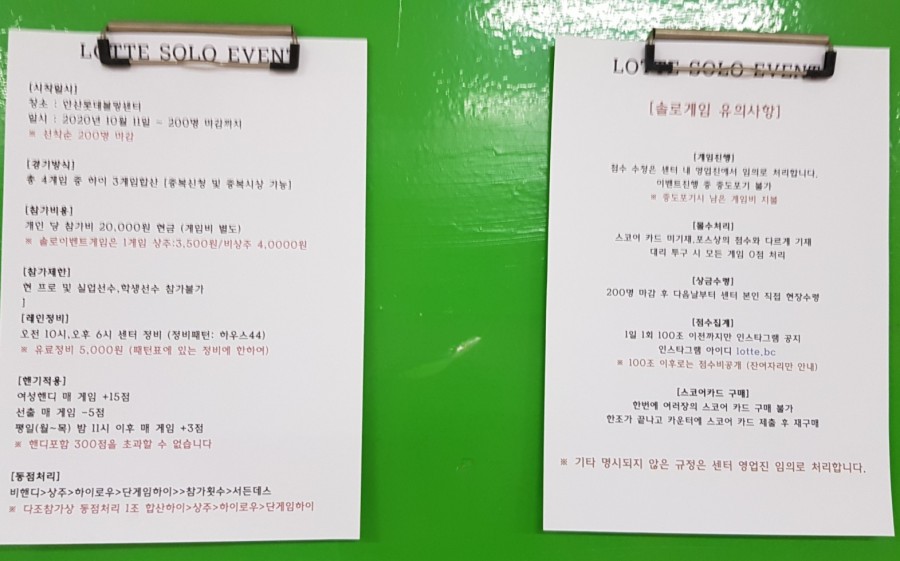 LOTTE SOLO EVENT
[시작일시]
장소 : 안산롯데볼링센터
일시 : 2020년 10월 11일 - 200명 마감까지
※ 선착순 200명 마감
[경기방식]
총 4게임 중 하이 3게임합산 [중복신청 및 중복시상 가능]
[참가비용]
개인 당 참가비 20,000원 현금 (게임비 별도)
※ 솔로이벤트게임은 1게임 상주:3,500원/비상주 4,0000원
[참가제한]
현 프로 및 실업선수,학생선수 참가불가
]
[레인정비]
오전 10시,오후 6시 센터 정비 (정비패턴: 하우스44)
※ 유료정비 5,000원 (패턴표에 있는 정비에 한하여)
[핸기적용]
여성핸디 매 게임 +15점
선출 매 게임 -5점
평일(월~목) 밤 11시 이후 매 게임 +3점
※ 핸디포함 300점을 초과할 수 없습니다
[동점처리]
비핸디>상주>하이로우>단게임하이>>참가횟수>서든데스
※ 다조참가상 동점처리 1조 합산하이>상주>하이로우>단게임하이
LOTTE SOLO EVENT
[솔로게임 유의사항]
[게임진행]
점수 수정은 센터 내 영업진에서 임의로 처리합니다.
이벤트진행 중 중도포기 불가
※ 중도포기시 남은 게임비 지불
[몰수처리]
스코어 카드 미기재,포스상의 점수와 다르게 기재
대리 투구 시 모든 게임 0점 처리
[상금수령]
200명 마감 후 다음날부터 센터 본인 직접 현장수령
[점수집계]
1일 1회 100조 이전까지만 인스타그램 공지
인스타그램 아이디 lotte.bc
※ 100조 이후로는 점수비공개 (잔여자리만 안내)
[스코어카드 구매]
한번에 여러장의 스코어 카드 구매 불가
한조가 끝나고 카운터에 스코어 카드 제출 후 재구매
※ 기타 명시되지 않은 규정은 센터 영업진 임의로 처리합니다.